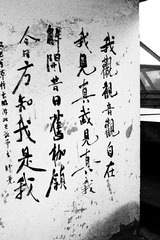 我觀觀音觀自在
我見真我見真我
解開昔日舊枷鎖
今日方知我是我